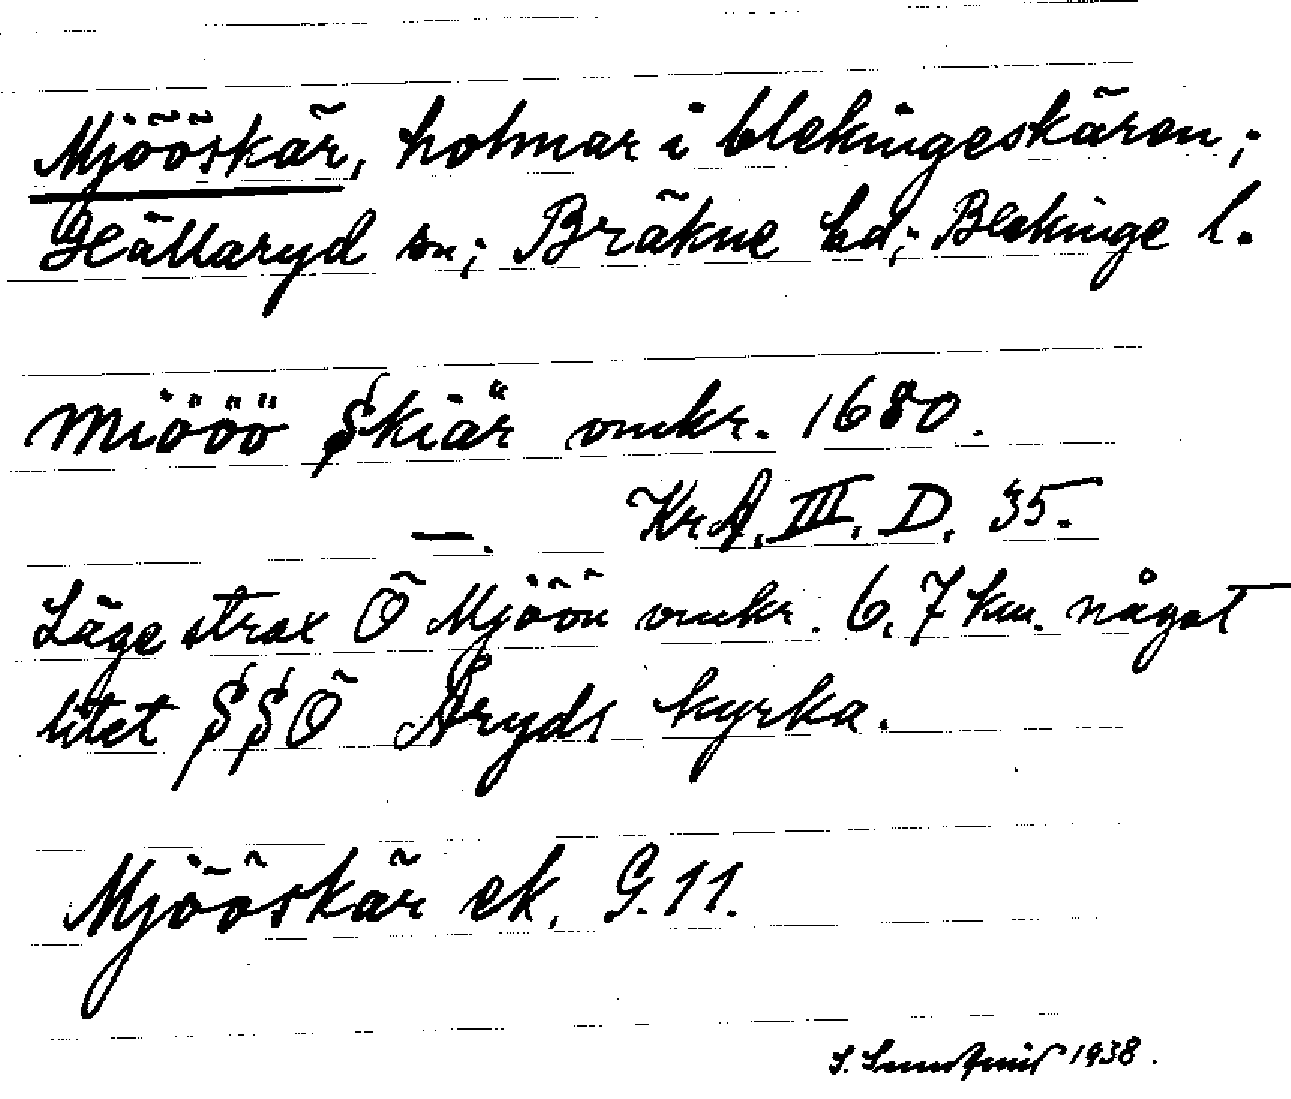 Mjööskär, holmar i blekingeskären;
Hällaryd sn; Bräkne hd; Blekinge l.
Miööö Skiär omkr. 1680.
KrA. III. D. 35.
—.
Läge strax Ö Mjöön omkr. 6,7 km. något
litet SSÖ Åryds kyrka.
Mjööskär ek. G.11.
S. 1938.